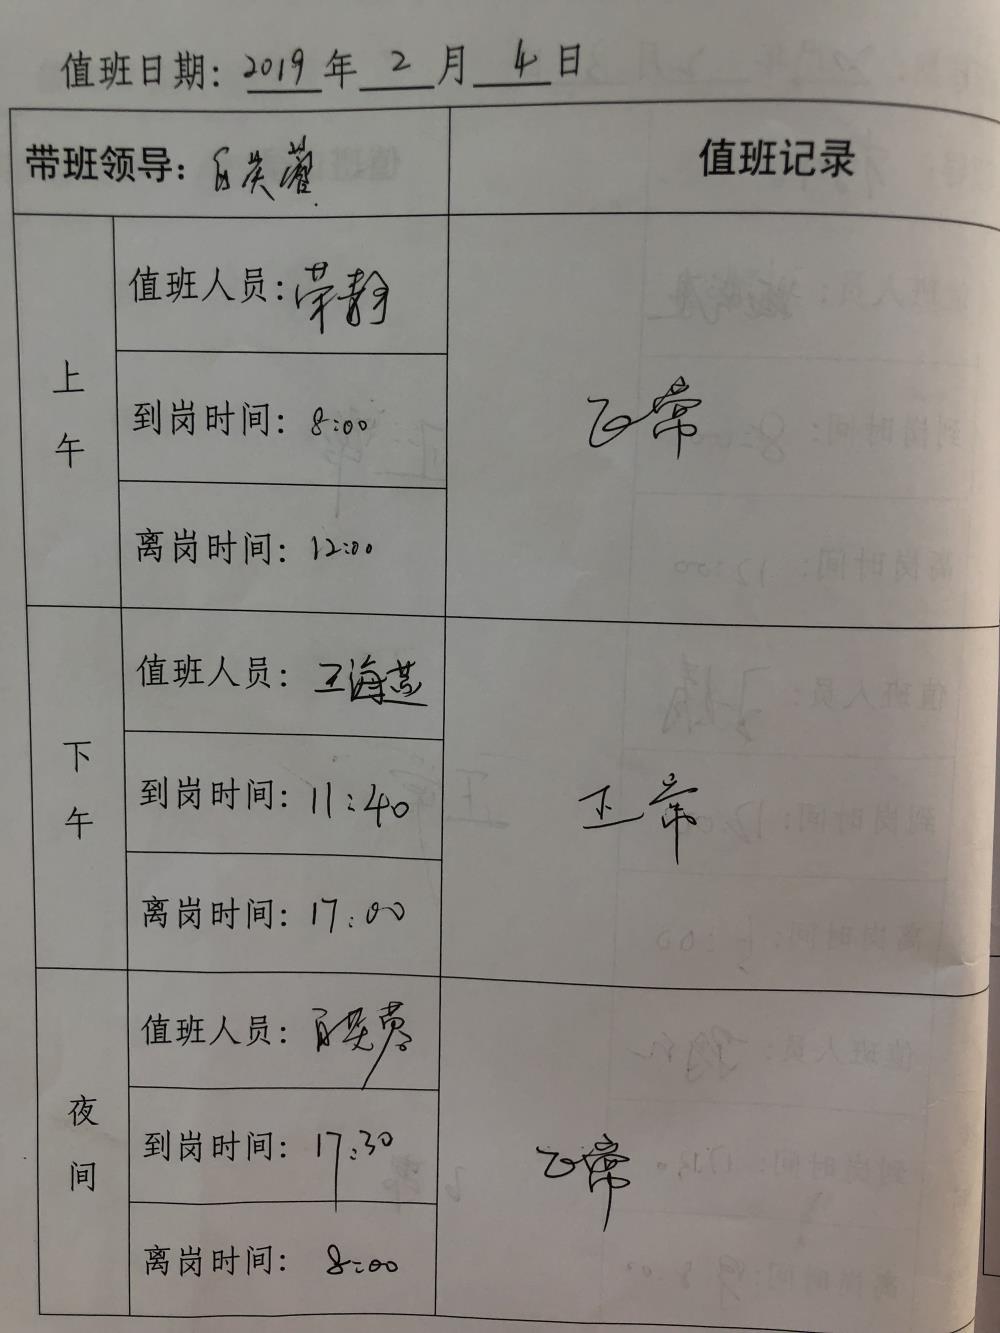 值班日期: 2019 年 2 月 4 日
带班领导: 白英蓉
值班记录
上午
值班人员: 荣静
到岗时间: 8:00
离岗时间: 12:00
正常
下午
值班人员: 王海燕
到岗时间: 11:40
离岗时间: 17:00
正常
夜间
值班人员: 白英蓉
到岗时间: 17:30
离岗时间: 8:00
正常